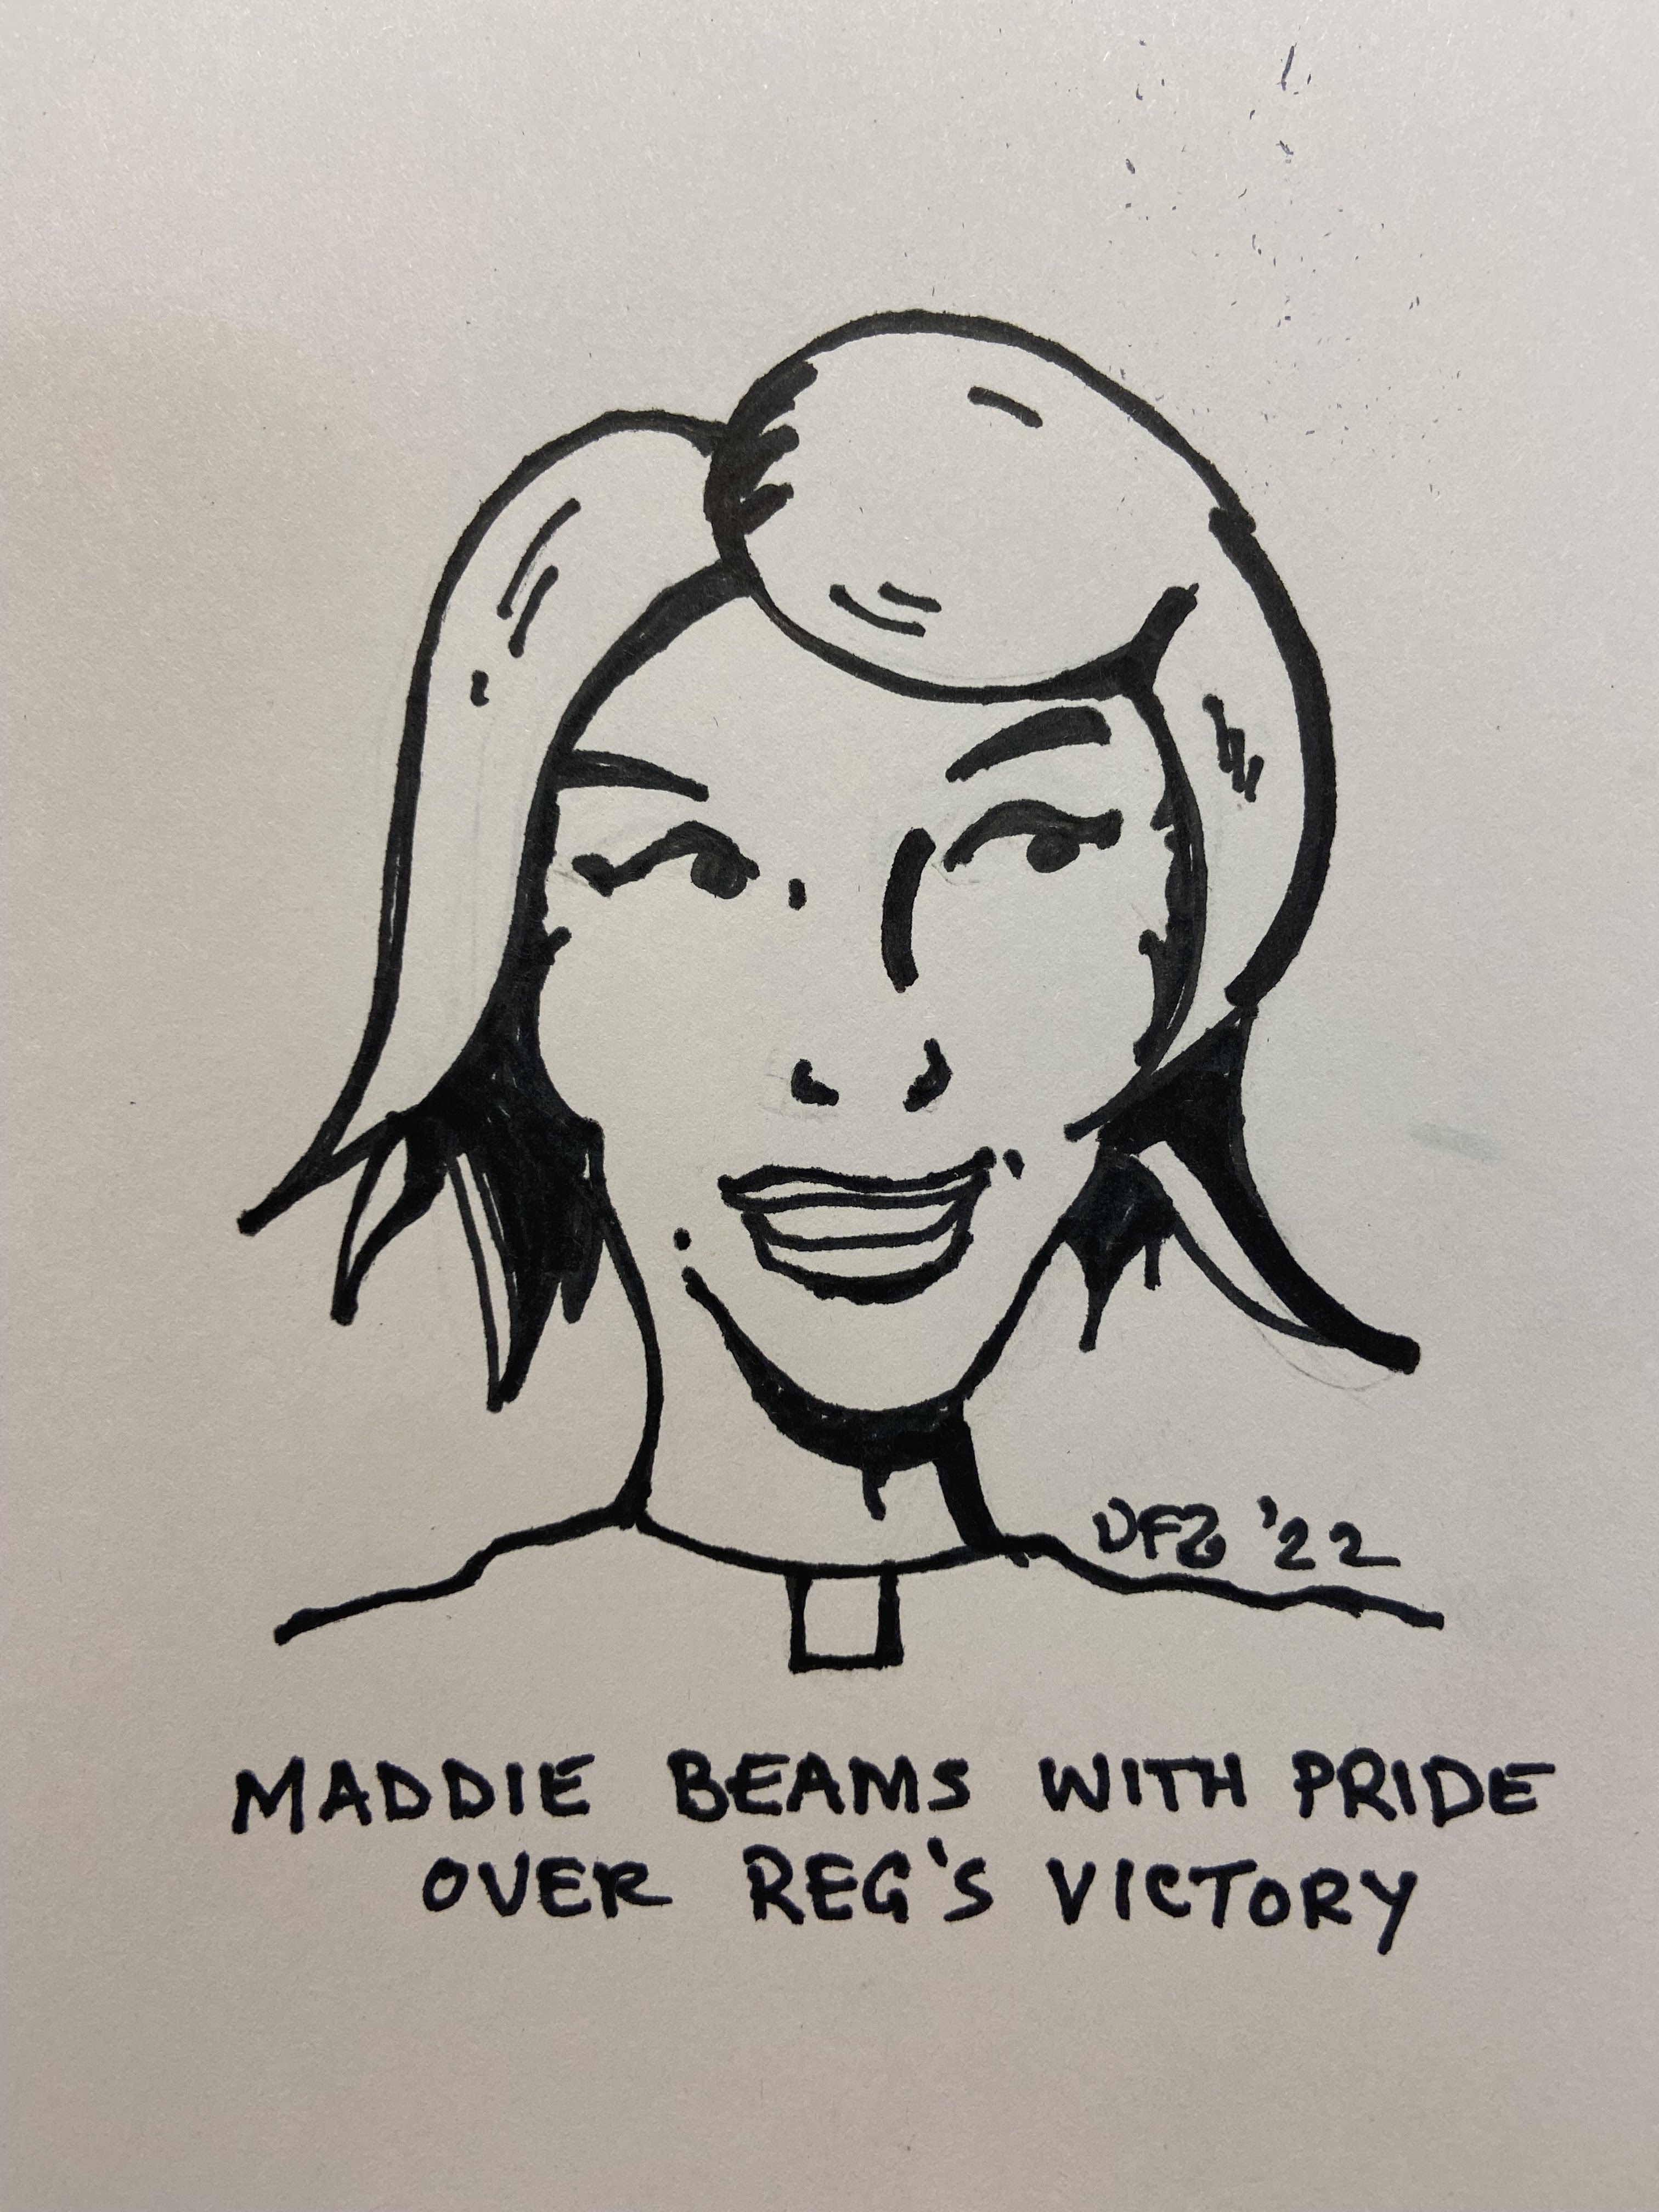 DFZ '22
MADDIE BEAMS WITH PRIDE
OVER REG'S VICTORY